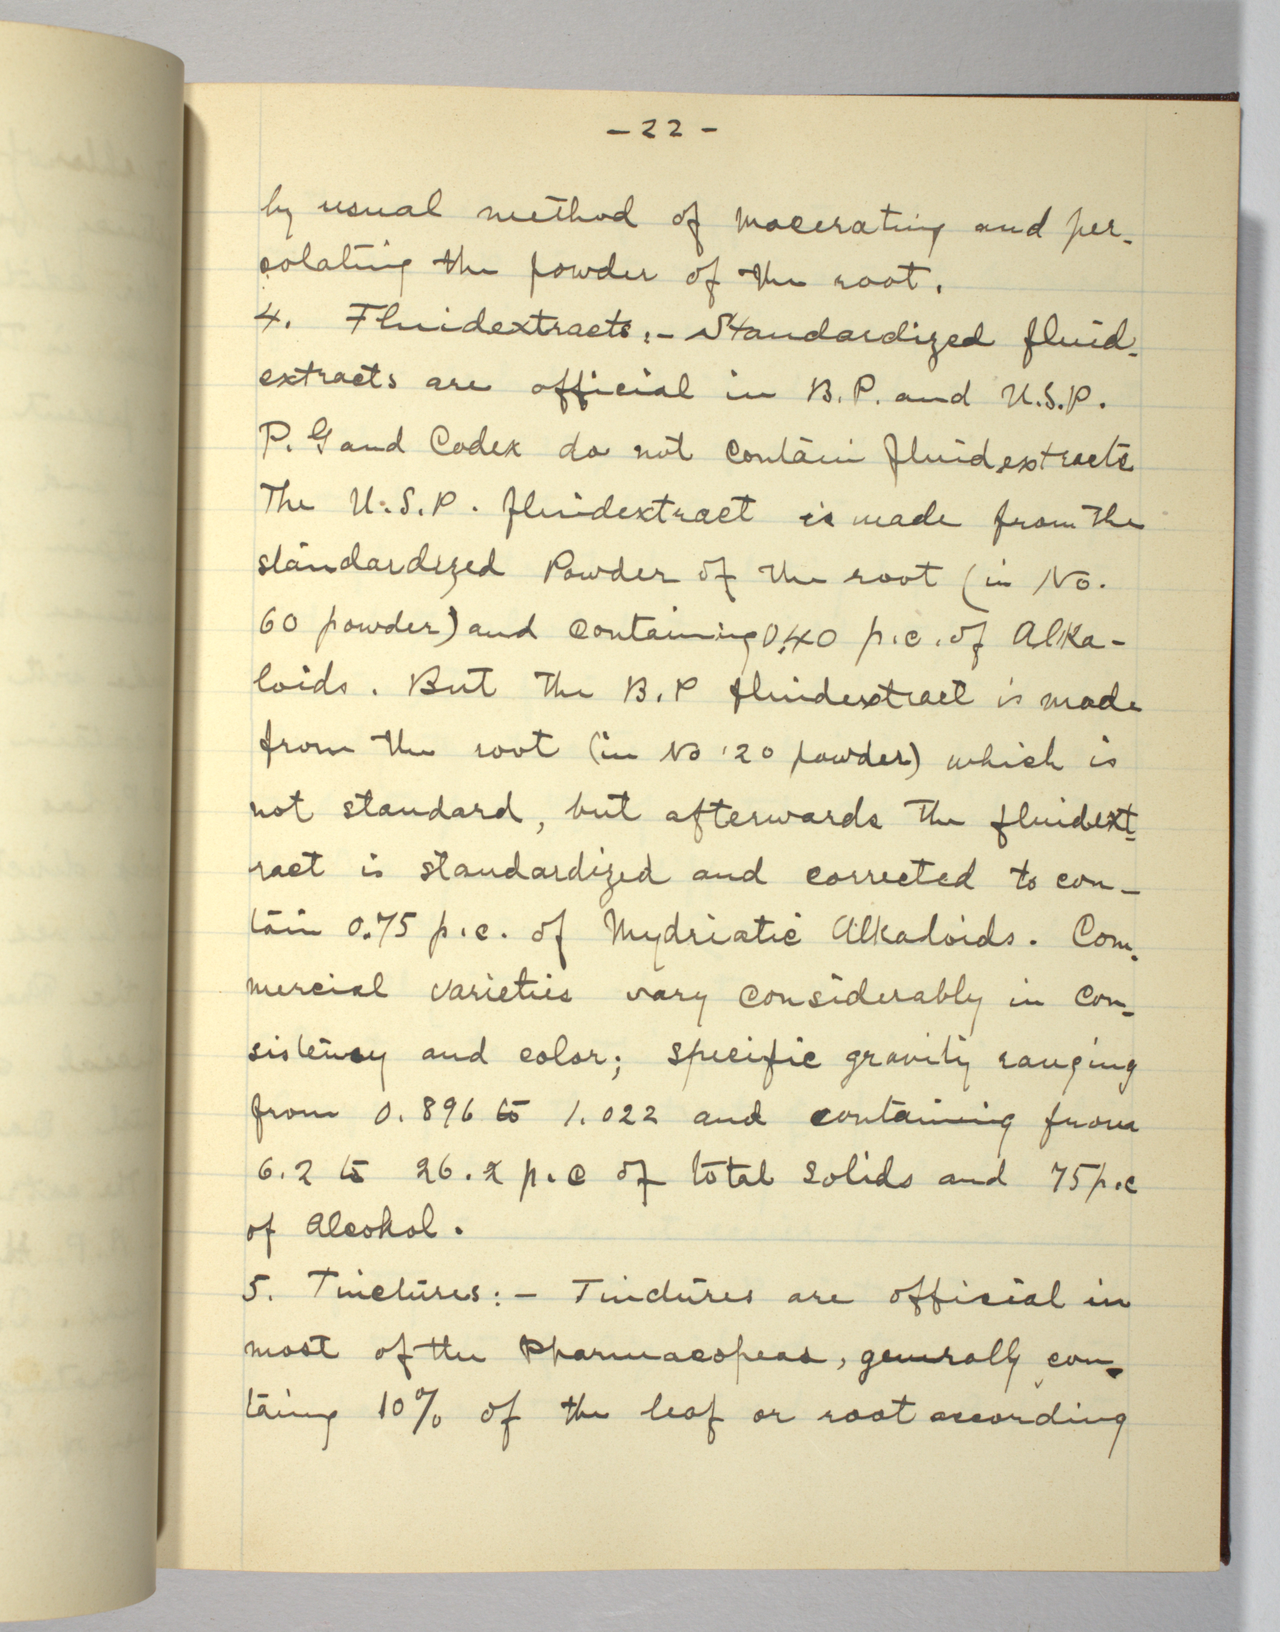 - 22 -
by usual method of macerating and per-
colating the powder of the root.
4. Fluidextracts:- Standardized fluid-
extracts are official in B.P. and U.S.P.
P.G and Codex do not contain fluidextracts
The U.S.P. fluidextract is made from the
standardized Powder of the root (in No.
60 powder) and containing 0.40 p.c. of Alka-
loids. But the B.P fluidextract is made
from the root (in No 20 powder) which is
not standard, but afterwards the fluidext-
ract is standardized and corrected to con-
tain 0.75 p.c. of Mydriatic Alkaloids. Com-
mercial varieties vary considerably in con-
sistency and color; specific gravity ranging
from 0.896 to 1.022 and containing from
6.2 to 26.2 p.c of total solids and 75 p.c
of Alcohol.
5. Tinctures:- Tinctures are official in
most of the Pharmacopeas, generally con-
taing 10% of the leaf or root according